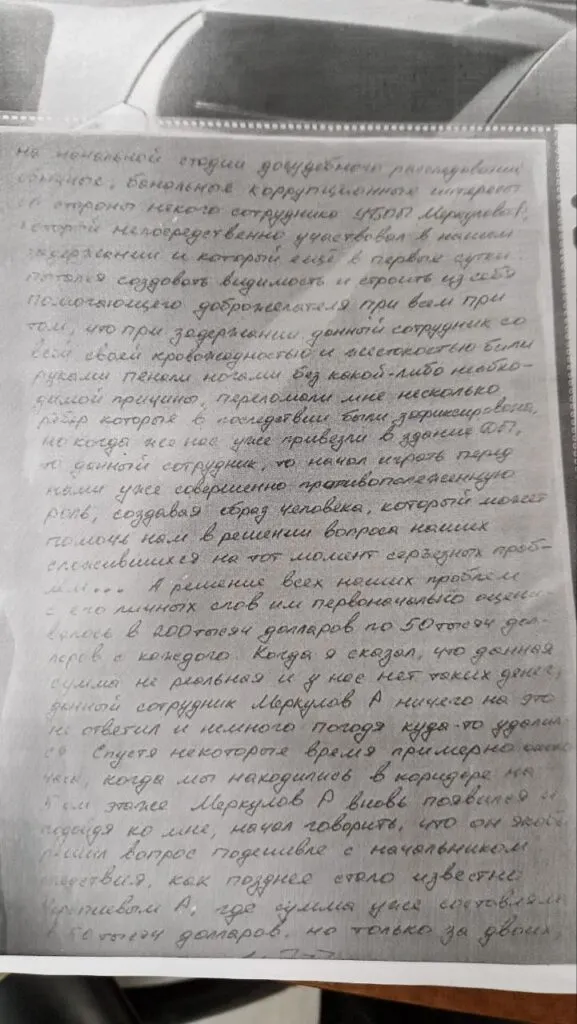 на начальной стадии досудебного расследования
обычные, банальные коррупционные интересы
со стороны некого сотрудника УБОП Меркулова Р,
который непосредственно участвовал в нашем
задержании и который ещё в первые сутки
пытался создовать видимость и строить из себя
помогающего доброжелателя при всем при
том, что при задержании данный сотрудник со
всей своей кровожадностью и жестокостью били
руками пенали ногами без какой-либо необхо-
димой причины, переломали мне несколько
рёбер которые в последствии были зафиксированы,
но когда же нас уже привезли в здание
то данный сотрудник, то начал играть перед
нами уже совершенно противоположенную
роль, создавая образ человека, который может
помочь нам в решении вопроса наших
сложившихся на тот момент серьезных проб-
лем... А решение всех наших проблем
с его личных слов им первоначально оцени-
валось в 200 тысяч долларов по 50 тысяч дол-
ларов с каждого. Когда я сказал, что данная
сумма не реальная и у нас нет таких денег,
данный сотрудник Меркулов Р ничего на это
не ответил и немного погодя куда-то удалил-
ся. Спустя некоторые время примерно
часа, когда мы находились в коридоре на
этаже Меркулов Р вновь появился и
подойдя ко мне, начал говорить, что он якобы
решил вопрос подешивле с начальником
следствия, как позднее стало известно
А, где сумма уже составляла
в 50 тысяч долларов, но только за двоих,